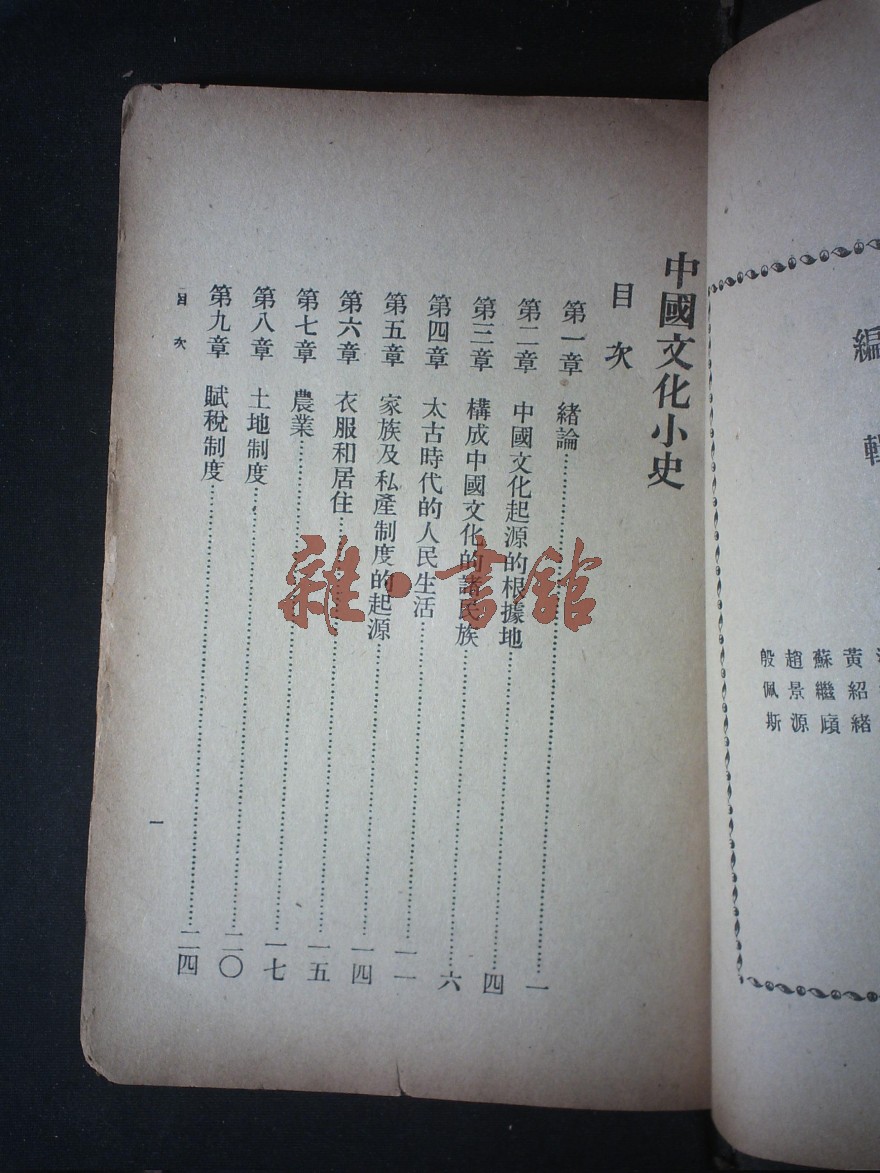 編輯
黃紹緒
蘇繼廎
趙景源
殷佩斯
中國文化小史
目次
第一章 緒論……一
第二章 中國文化起源的根據地……四
第三章 構成中國文化的諸民族……六
第四章 太古時代的人民生活……一一
第五章 家族及私產制度的起源……一四
第六章 衣服和居住……一五
第七章 農業……一七
第八章 土地制度……二〇
第九章 賦稅制度……二四
目次
一
雜·書館